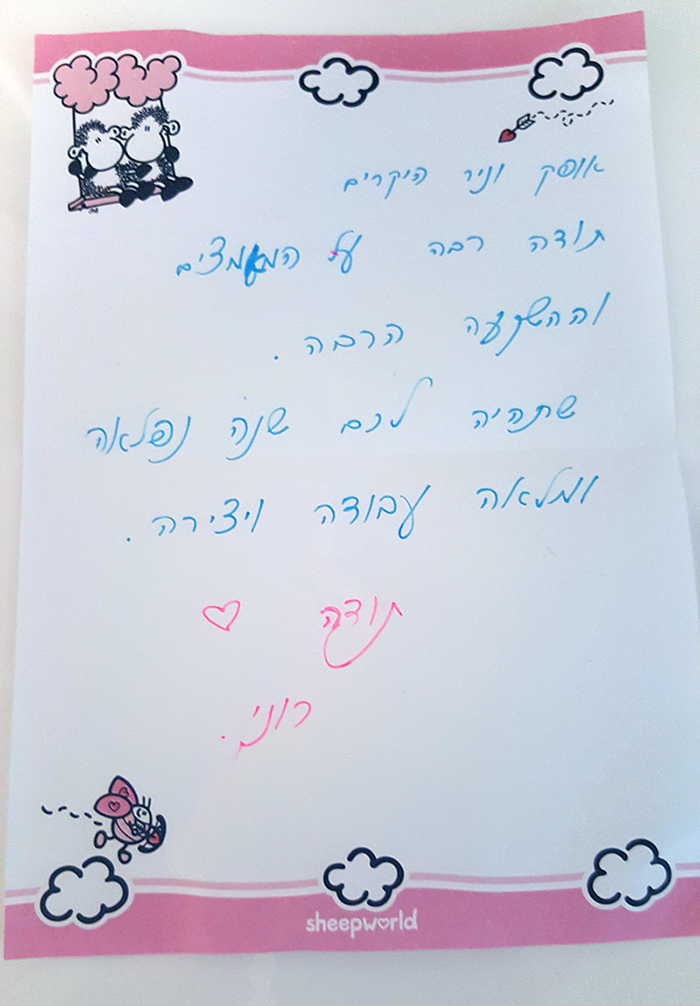 אופק וניר היקרים
תודה רבה על המאמצים
וההשקעה הרבה.
שתהיה לכם שנה נפלאה
ומלאה עבודה ויצירה.
תודה ♡
רוני.
sheepworld